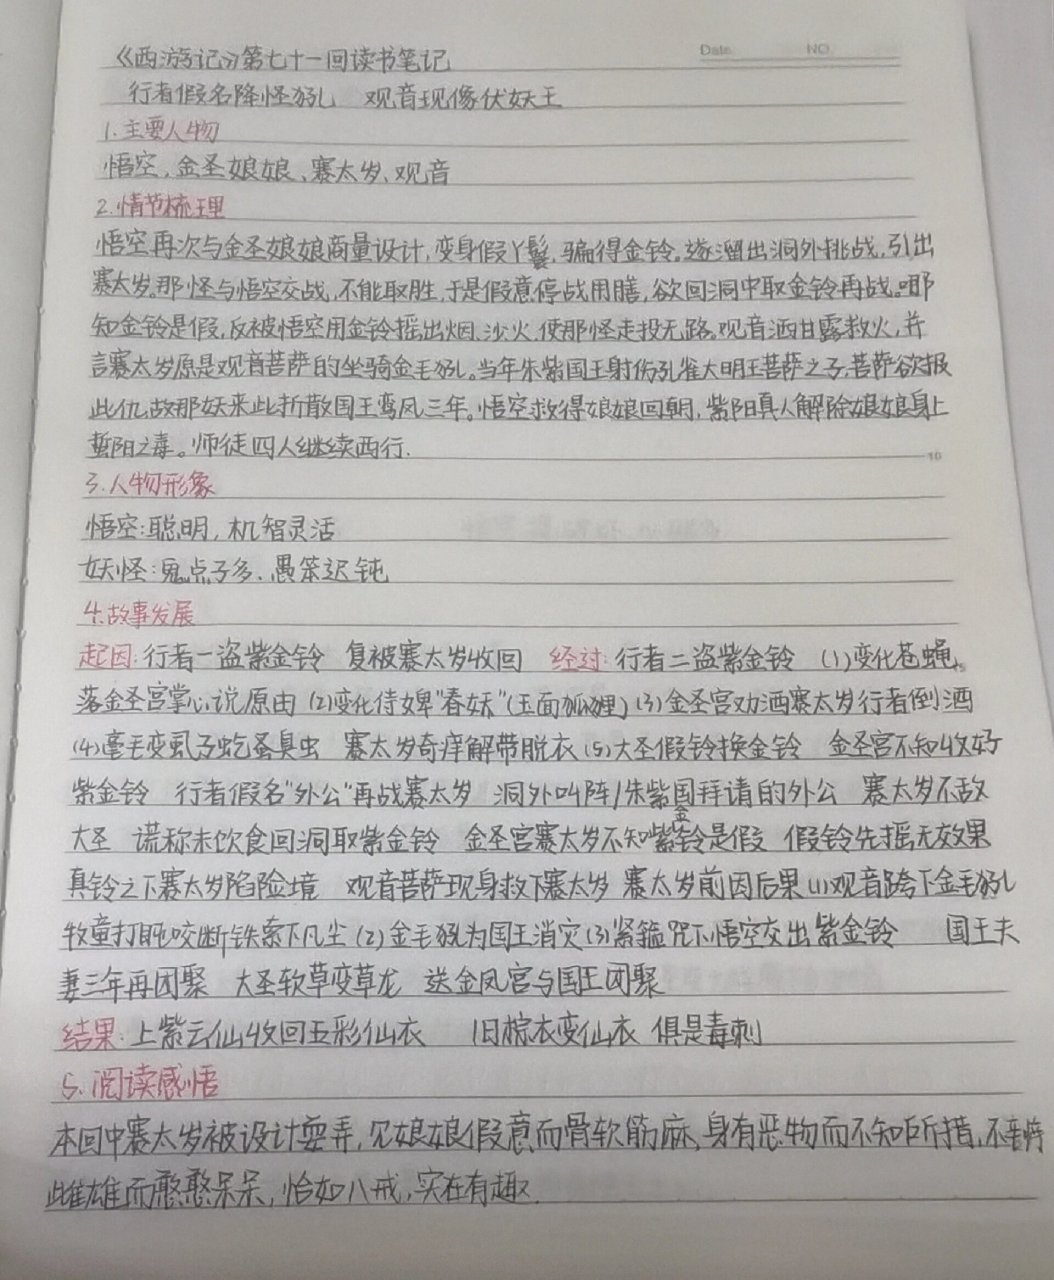 《西游记》第七十一回读书笔记
Date. NO.
行者假名降怪犼 观音现像伏妖王
1.主要人物
悟空、金圣娘娘、赛太岁、观音
2.情节梳理
悟空再次与金圣娘娘商量设计,变身假丫鬟,骗得金铃。遂溜出洞外挑战,引出
赛太岁。那怪与悟空交战,不能取胜,于是假意停战用膳,欲回洞中取金铃再战。哪
知金铃是假,反被悟空用金铃摇出烟、沙、火,使那怪走投无路。观音洒甘露救火,并
言赛太岁原是观音菩萨的坐骑金毛犼。当年朱紫国王射伤孔雀大明王菩萨之子,菩萨欲报
此仇,故那妖来此拆散国王鸾凤三年。悟空救得娘娘回朝,紫阳真人解除娘娘身上
蜇阳之毒。师徒四人继续西行.
10
3.人物形象
悟空:聪明,机智灵活
妖怪:鬼点子多、愚笨迟钝
4.故事发展
起因:行者一盗紫金铃 复被赛太岁收回 经过:行者二盗紫金铃 (1)变化苍蝇、
落金圣宫掌心说原由 (2)变化侍婢"春妖"(玉面狐狸) (3)金圣宫劝酒赛太岁行者倒酒
(4)毫毛变虱子虼蚤臭虫 赛太岁奇痒解带脱衣 (5)大圣假铃换金铃 金圣宫不知收好
紫金铃 行者假名"外公"再战赛太岁 洞外叫阵/朱紫国拜请的外公 赛太岁不敌
大圣 谎称未饮食回洞取紫金铃 金圣宫赛太岁不知紫金铃是假 假铃先摇无效果
真铃之下赛太岁陷险境 观音菩萨现身救下赛太岁 赛太岁前因后果 (1)观音跨下金毛犼
牧童打盹咬断铁索下凡尘 (2)金毛犼为国王消灾 (3)紧箍咒下悟空交出紫金铃 国王夫
妻三年再团聚 大圣软草变草龙 送金凤宫与国王团聚
结果:上紫云仙收回五彩仙衣 旧棕衣变仙衣 俱是毒刺
5.阅读感悟
本回中赛太岁被设计耍弄,见娘娘假意而骨软筋麻,身有恶物而不知所措,不
雄而憨憨呆呆,恰如八戒,实在有趣.